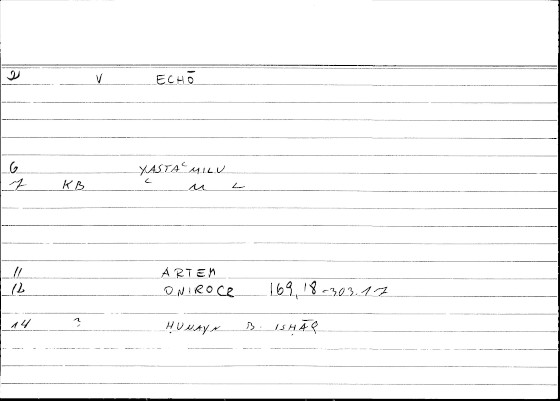 2 V ECHŌ
6 YASTAᶜMILU
7 KB ᶜ M L
11 ARTEM
12 ONIROCR 169,18-303.17
14 ? ḤUNAYN B. ISḤĀQ